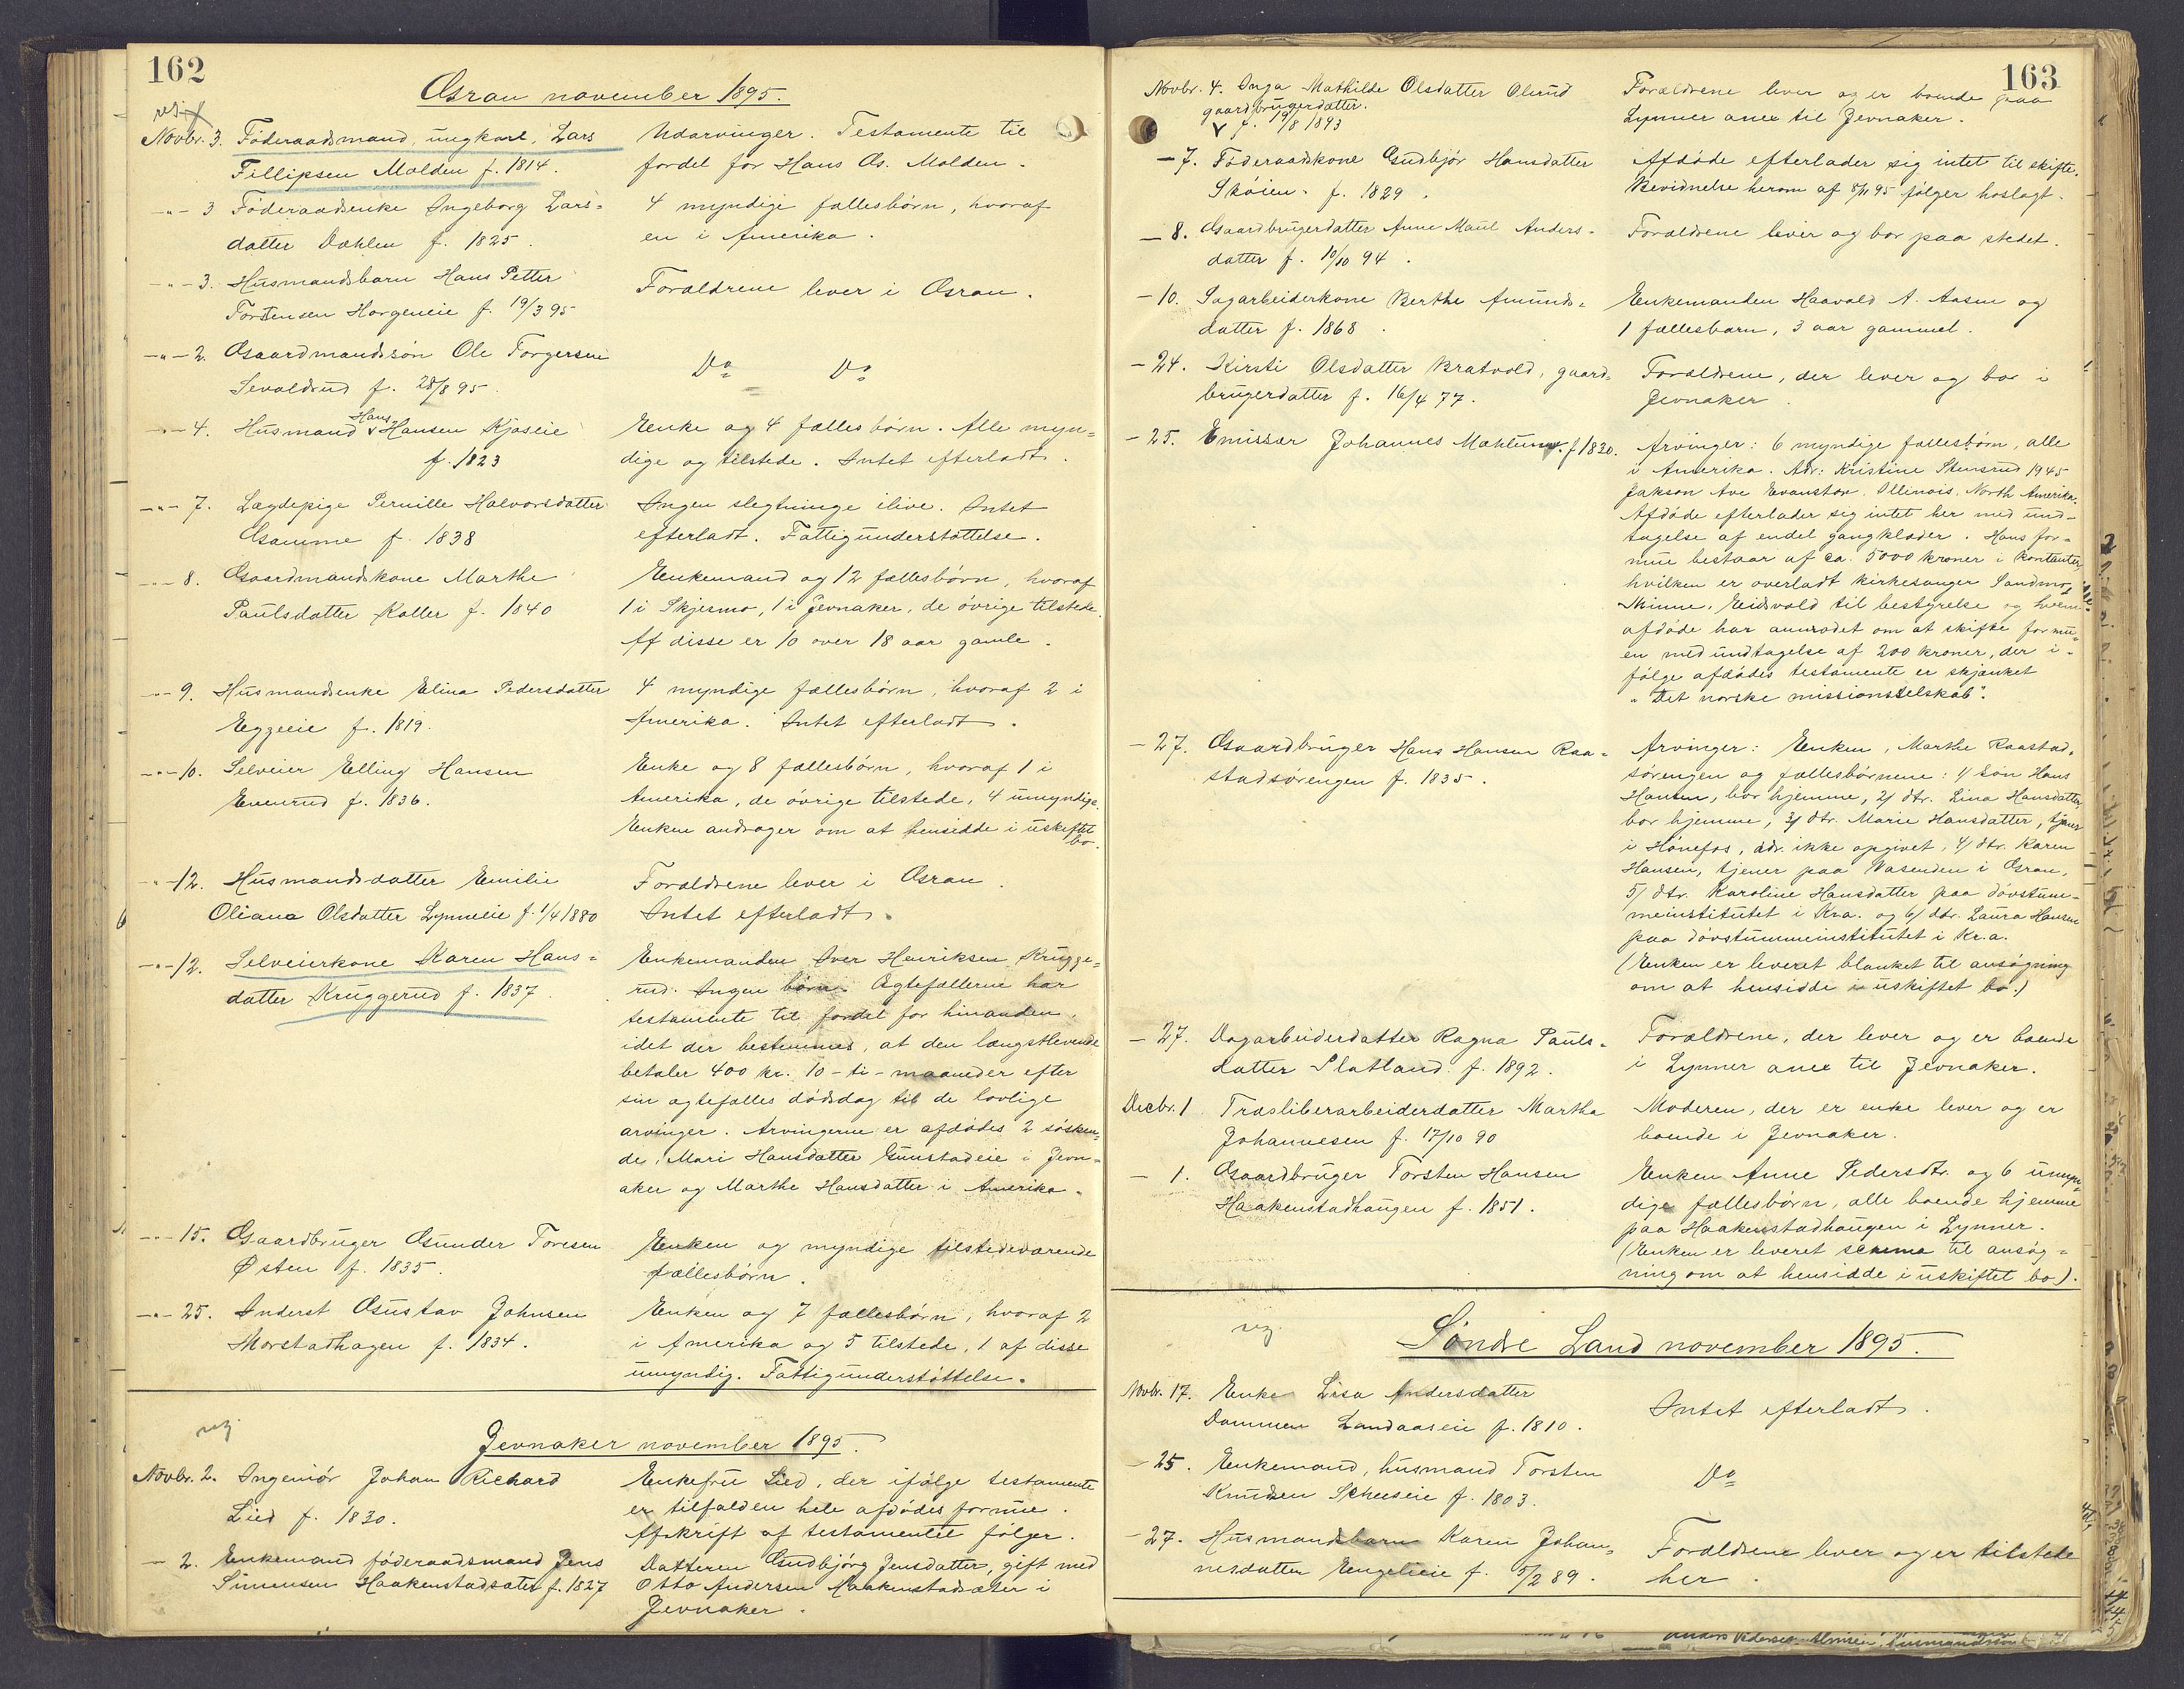 162
Gran november 1895.
reg.
Novbr. 3. Föderaadsmand, ungkarl, Lars
Fillipsen Molden f. 1814.
Udarvinger. Testamente til
fordel for Hans Os. Molden.
-"- 3 Föderaadsenke Ingeborg Lars=
datter Dæhlen f. 1825.
4 myndige fællesbörn, hvoraf
en i Amerika.
-"- 3. Husmandsbarn Hans Petter
Torstensen Horgeneie f. 19/3 95
Forældrene lever i Gran.
-"- 2. Gaardmandssön Ole Torgersen
Sevaldrud f. 28/8 95.
Do Do
-"- 4. Husmand Hans Hansen Kjoseie
f. 1823
Enke og 4 fællesbörn. Alle myn=
dige og tilstede. Intet efterladt.
-"- 7. Lægdepige Pernille Halvorsdatter
Gamme f. 1838
Ingen slegtninge ilive. Intet
efterladt. Fattigunderstöttelse.
-"- 8. Gaardmandskone Marthe
Paulsdatter Koller f. 1840
Enkemand og 12 fællesbörn, hvoraf
1 i Skjesmo, 1 i Jevnaker, de övrige tilstede.
Af disse er 10 over 18 aar gamle.
-"- 9. Husmandsenke Elina Pedersdatter
Eggeeie f. 1819.
4 myndige fællesbörn, hvoraf 2 i
Amerika. Intet efterladt.
-"- 10. Selveier Elling Hansen
Evenrud f. 1836.
Enke og 8 fællesbörn, hvoraf 1 i
Amerika, de övrige tilstede, 4 umyndige.
Enken andrager om at hensidde i uskiftet
bo.
-"- 12. Husmandsdatter Emilie
Oliana Olsdatter Lynneeie f. 1/4 1880
Forældrene lever i Gran.
Intet efterladt.
-"- 12. Selveierkone Karen Hans=
datter Kruggerud f. 1837.
Enkemanden Iver Henriksen Krugge=
rud. Ingen börn. Ægtefællerne har
testamente til fordel for hinanden,
idet der bestemmes, at den længstlevende
betaler 400 kr. 10 - ti - maaneder efter
sin ægtefælles dödsdag til de lovlige
arvinger. Arvingerne er afdödes 2 sösken=
de: Mari Hansdatter Gunstadeie i Jevn=
aker og Marthe Hansdatter i Amerika.
-"- 15. Gaardbruger Gunder Toresen
Østen f. 1835.
Enken og myndige tilstedeværende
fællesbörn.
-"- 25. Inderst Gustav Johnsen
Morstadhagen f. 1834.
Enken og 7 fællesbörn, hvoraf 2
i Amerika og 5 tilstede, 1 af disse
umyndig. Fattigunderstöttelse.
reg.
Jevnaker november 1895.
Novbr. 2. Ingeniör Johan Richard
Lied f. 1830.
Enkefru Lied, der ifölge testamente
er tilfalden hele afdödes formue.
Afskrift af testamentet fölger.
- 2. Enkemand föderaadsmand Jens
Simensen Haakenstadsæter f. 1827
Datteren Gudbjörg Jensdatter, gift med
Otto Andersen Haakenstadsæter i
Jevnaker.
163
Novbr. 4. Inga Mathilde Olsdatter Olerud
gaardbrugerdatter.
f. 19/8 1893
Forældrene lever og er boende paa
Lynner anex til Jevnaker.
- 7. Föderaadskone Gudbjör Hansdatter
Sköien. f. 1829.
Afdöde efterlader sig intet til skifte.
Bevidnelse herom af 8/11 95 fölger hoslagt.
- 8. Gaardbrugerdatter Anne Maul Anders=
datter f. 10/10 94.
Forældrene lever og bor paa stedet.
- 10. Sagarbeiderkone Berthe Amunds=
datter f. 1868.
Enkemanden Haavald A. Aasen og
1 fællesbarn, 3 aar gammel.
- 24. Kirsti Olsdatter Bratvold, gaard=
brugerdatter f. 16/4 77.
Forældrene, der lever og bor i
Jevnaker.
- 25. Emissær Johannes Mæhlum f. 1820.
Arvinger: 6 myndige fællesbörn, alle
i Amerika. Adr: Kristine Stensrud 1945
Jakson Ave Evanston. Illinois. North Amerika.
Afdöde efterlader sig intet her med und=
tagelse af endel gangklæder. Hans for=
mue bestaar af ca. 5000 kroner i kontanter,
hvilken er overladt kirkesanger Sandmo,
Minne, Eidsvold til bestyrelse og hvem
afdöde har anmodet om at skifte formu=
en med undtagelse af 200 kroner, der i=
fölge afdödes testamente er skjænket
"Det norske missionsselskab".
- 27. Gaardbruger Hans Hansen Raa=
stadsörengen f. 1835.
Arvinger: Enken, Marthe Raastad=
sörengen og fællesbörnene: 1/ Sön Hans
Hansen, bor hjemme, 2/ dtr. Lina Hansdatter
bor hjemme, 3/ dtr. Marie Hansdatter, tjener
i Hönefos, adr. ikke opgivet, 4/ dtr. Karen
Hansen, tjener paa Vasenden i Gran,
5/ dtr. Karoline Hansdatter paa dövstum=
meinstitutet i Kra. og 6/ dtr. Laura Hansen
paa dövstummeinstitutet i Kr.a.
(Enken er leveret blanket til ansögning
om at hensidde i uskiftet bo.)
- 27. Dagarbeiderdatter Ragna Pauls=
datter Slatland. f. 1892.
Forældrene, der lever og er boende
i Lynner anex til Jevnaker.
Decbr. 1 Træsliberarbeiderdatter Martha
Johannesen f. 17/10 90
Moderen, der er enke lever og er
boende i Jevnaker.
- 1. Gaardbruger Torsten Hansen
Haakenstadhaugen f. 1851.
Enken Anne Pedersdtr. og 6 umyn=
dige fællesbörn, alle boende hjemme
paa Haakenstadhaugen i Lynner.
(Enken er leveret skema til ansög=
ning om at hensidde i uskiftet bo).
reg.
Söndre Land november 1895.
Novbr. 17. Enke Lisa Andersdatter
Dammen Landaaseie f. 1810.
Intet efterladt.
- 25. Enkemand, husmand Torsten
Knudsen Scheeseie f. 1803.
Do
- 27. Husmandsbarn Karen Johan=
nesdatter Engelieie f. 5/2 89.
Forældrene lever og er tilstede
her.